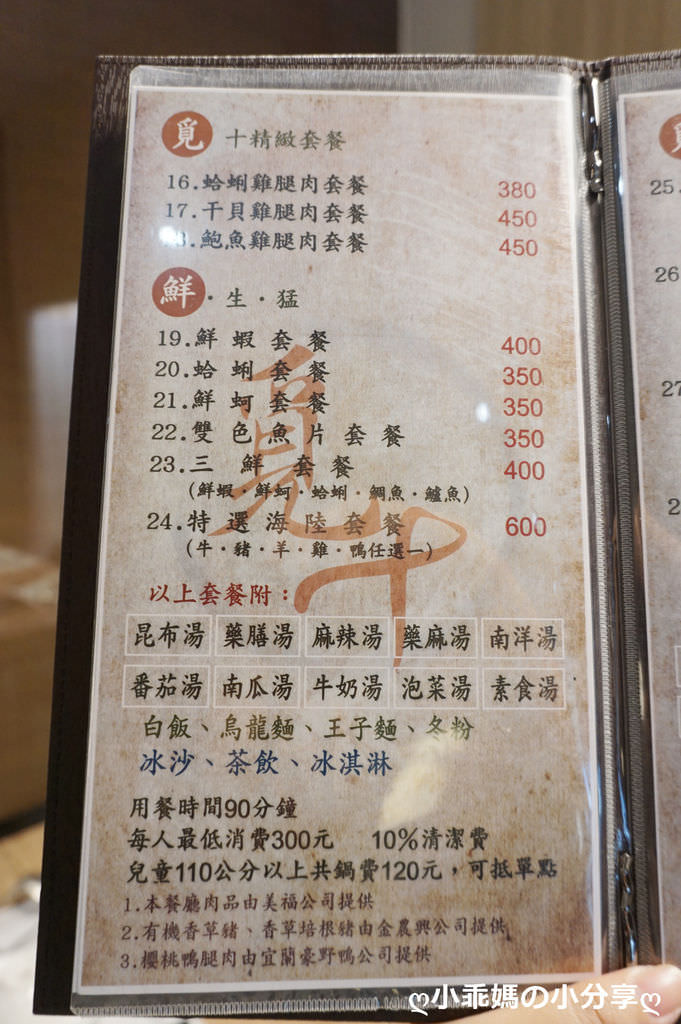 覓 十精緻套餐
16.蛤蜊雞腿肉套餐 380
17.干貝雞腿肉套餐 450
8.鮑魚雞腿肉套餐 450
鮮·生·猛
19.鮮蝦套餐 400
20.蛤蜊套餐 350
21.鮮蚵套餐 350
22.雙色魚片套餐 350
23.三鮮套餐 400
(鮮蝦·鮮蚵·蛤蜊·鯛魚·鱸魚)
24.特選海陸套餐 600
(牛·豬·羊·雞·鴨任選一)
覓牛
以上套餐附：
昆布湯 藥膳湯 麻辣湯 藥麻湯 南洋湯
番茄湯 南瓜湯 牛奶湯 泡菜湯 素食湯
白飯、烏龍麵、王子麵、冬粉
冰沙、茶飲、冰淇淋
用餐時間90分鐘
每人最低消費300元 10%清潔費
兒童110公分以上共鍋費120元，可抵單點
1.本餐廳肉品由美福公司提供
2.有機香草豬、香草培根豬由金農興公司提供
3.櫻桃鴨腿肉由宜蘭豪野鴨公司提供
25.
26
27
2
ღ小乖媽の小分享ღ